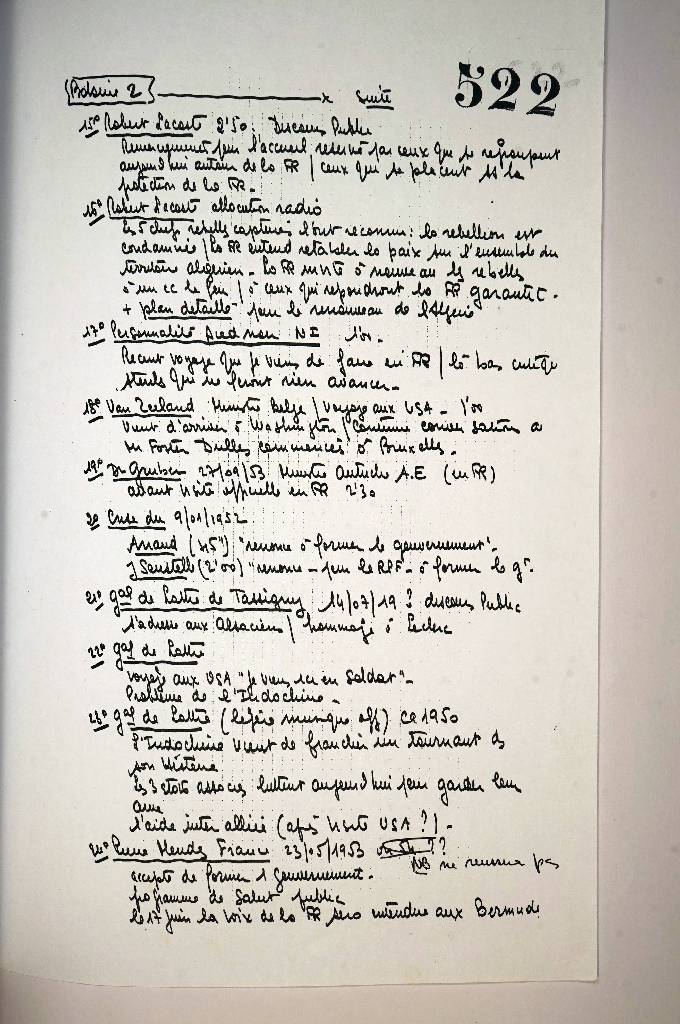 Bobine 2 x suite
522
15° Robert Lacoste 2'50. Discours Public
Remerciement pour l'accueil réservé par ceux qui se regroupent
aujourd'hui autour de la FR / ceux qui se placent ss la
protection de la FR.
16° Robert Lacoste allocution radio
les 5 chefs rebelles capturés l'ont reconnu : la rebellion est
condamnée / la FR entend retablir la paix sur l'ensemble du
territoire algerien. La FR invite à nouveau les rebelles
à un cc le feu / à ceux qui repondront la FR garantit.
+ plan detaillé pour le renouveau de l'Algerie
17° Personnalité Pied noir NI 1'00.
Recent voyage que je viens de faire en FR / là bas
steriles qui ne feront rien avancer.
18° Van Zeeland Ministre Belge / Voyage aux USA. 1'00
vient d'arriver à Washington / continue conversations a
Mr Foster Dulles commencées à Bruxelles.
19° Dr Gruber 27/09/53 Ministre Autriche A.E (en FR)
avant visite officielle en FR 2'30
20 Crise du 9/01/1952
(45") "renonce à former le gouvernement".
J Soustelle (2'00) "renonce - pour le RPF - à former le gt.
21° gal de Lattre de Tassigny 14/07/19 ? discours Public
s'adresse aux Alsaciens / hommage à Leclerc
22° gal de Lattre
voyage aux USA "Je viens ici en Soldat".
Problème de l'Indochine.
23° gal de Lattre (legère musique off) ca 1950
L'Indochine vient de franchir un tournant ds
son Histoire
les 3 etats associes luttent aujourd'hui pour garder leur
ame
l'aide inter alliée (après visite USA ?).
24° Pierre Mendes France 23/05/1953 ??
NB ne reussira pas
accepte de former 1 gouvernement.
programme de Salut public
le 17 juin la voix de la FR sera entendue aux Bermude